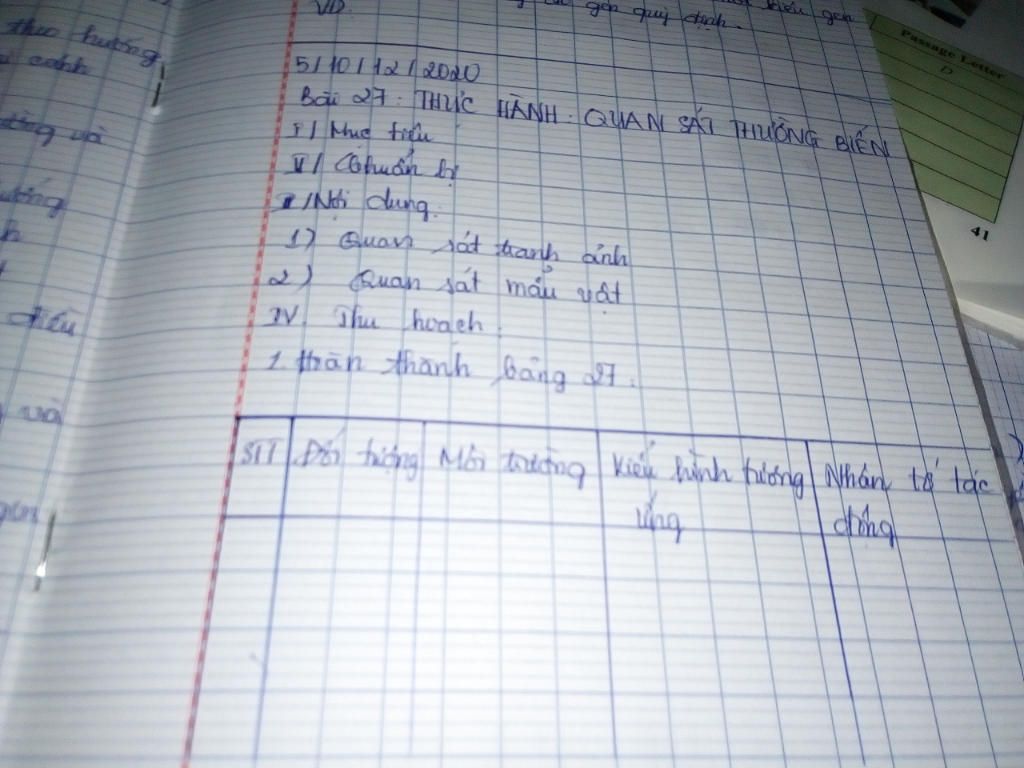 thuo hướng
cảnh
và
VD.
gen quy định.
kiểu gen
Passage Letter
D
41
5/10/12/2020
Bài 27: THỰC HÀNH: QUAN SÁT THƯỜNG BIẾN
I/ Mục tiêu
II/ Chuẩn bị
III/Nội dung:
1) Quan sát tranh ảnh
2) Quan sát mẫu vật
IV Thu hoạch.
1. Hoàn thành bảng 27.
điều
và
gen
STT Đối tượng Môi trường Kiểu hình tương Nhân tố tác
ứng động